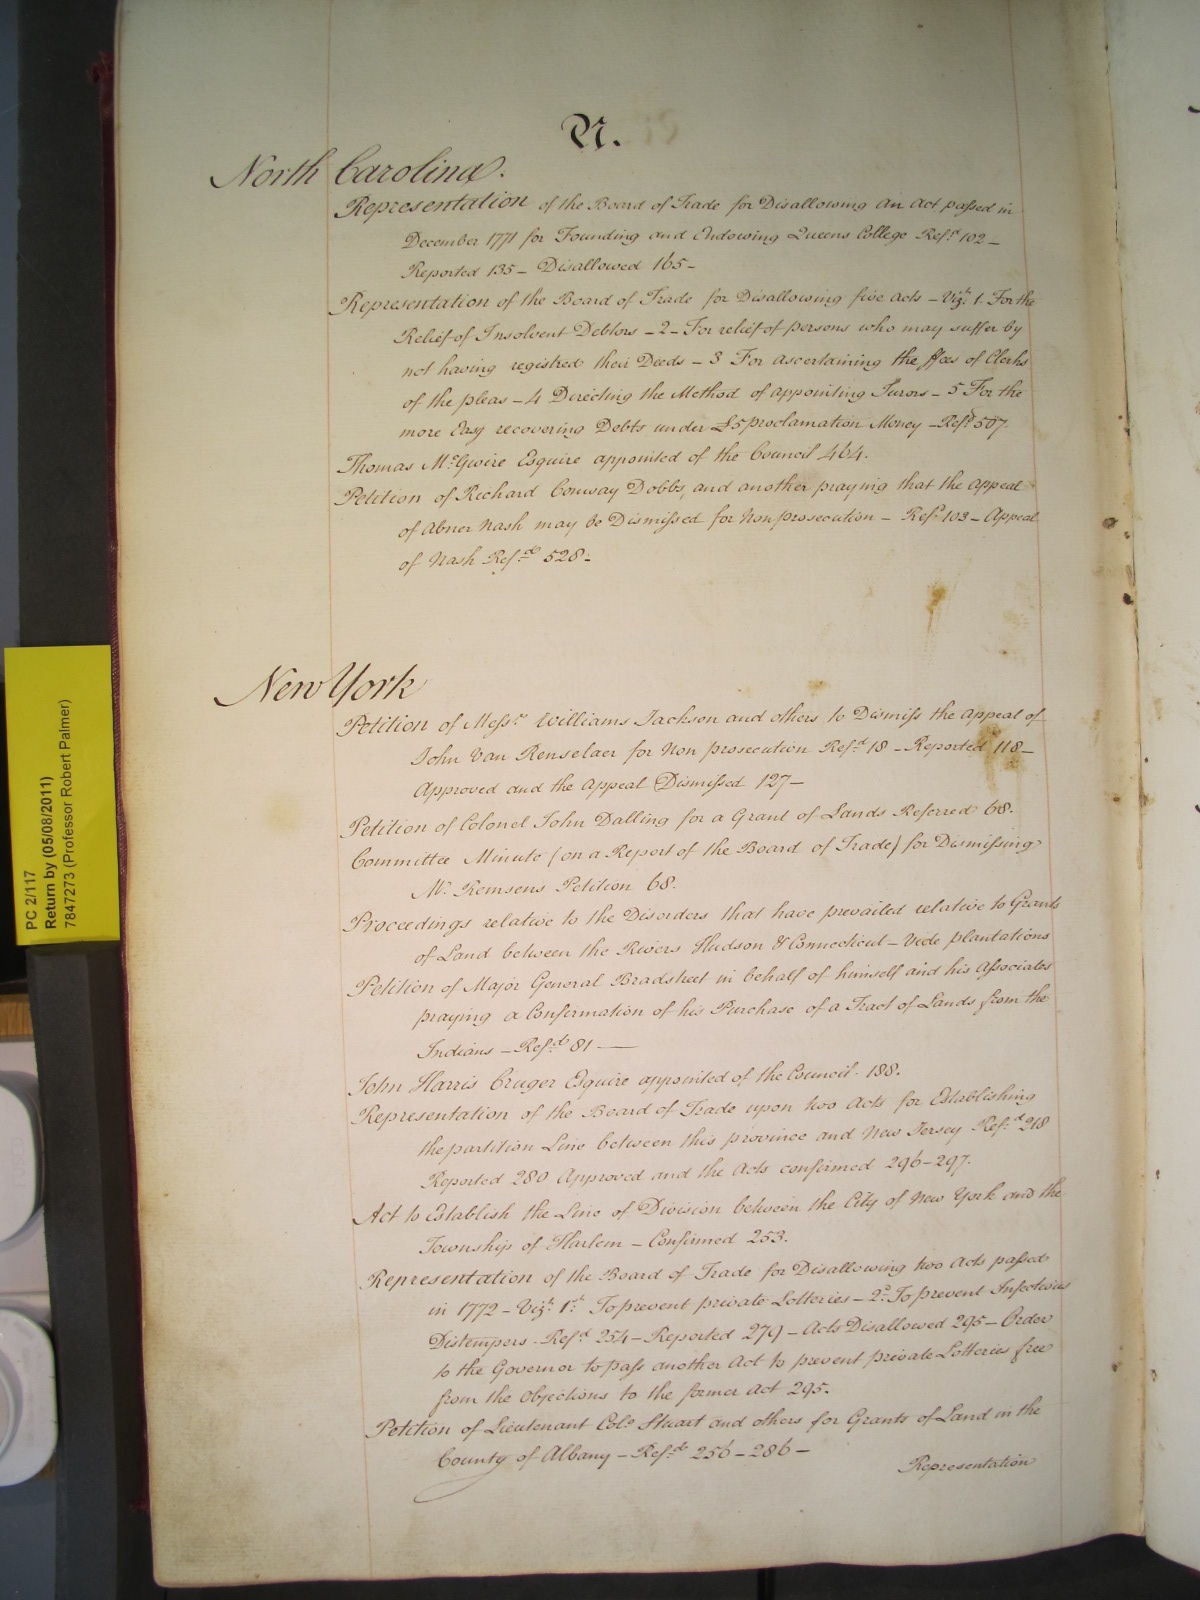 N.
North Carolina.
Representation of the Board of Trade for Disallowing an Act passed in
December 1771 for Founding and Endowing Queens College Ref.d 102 –
Reported 135 – Disallowed 165 –
Representation of the Board of Trade for Disallowing five Acts – Viz.t 1. For the
Relief of Insolvent Debtors – 2 – For relief of persons who may suffer by
not having registred their Deeds – 3 For ascertaining the ffees of Clerks
of the pleas – 4 Directing the Method of appointing Jurors – 5 For the
more Easy recovering Debts under £5 proclamation Money – Ref.d 507.
Thomas M.cGwire Esquire appointed of the Council 464.
Petition of Richard Conway Dobbs, and another praying that the appeal
of Abner Nash may be Dismissed for Non prosecution – Ref.d 103 – Appeal
of Nash Ref.d 528 –
New York
Petition of Mess.rs Williams Jackson and others to Dismiss the Appeal of
John Van Renselaer for Non prosecution Ref.d 18 – Reported 118 –
Approved and the Appeal Dismissed 127 –
Petition of Colonel John Dalling for a Grant of Lands Referred 68.
Committee Minute (on a Report of the Board of Trade) for Dismissing
M.r Remsens Petition 68.
Proceedings relative to the Disorders that have prevailed relative to Grants
of Land between the Rivers Hudson & Connecticut – Vide plantations
Petition of Major General Bradstreet in behalf of himself and his Associates
praying a Confirmation of his Purchase of a Tract of Lands from the
Indians – Ref.d 81 —
John Harris Cruger Esquire appointed of the Council. 188.
Representation of the Board of Trade upon two Acts for Establishing
the partition Line between this province and New Jersey Ref.d 218
Reported 280 Approved and the Acts confirmed 296–297.
Act to Establish the Line of Division between the City of New York and the
Township of Harlem – Confirmed 253.
Representation of the Board of Trade for Disallowing two Acts passed
in 1772 – Viz.t 1.st To prevent private Lotteries – 2.d To prevent Infectious
Distempers – Ref.d 254 – Reported 279 – Acts Disallowed 295 – Order
to the Governor to pass another Act to prevent private Lotteries free
from the Objections to the former Act 295.
Petition of Lieutenant Col.o Stuart and others for Grants of Land in the
County of Albany – Ref.d 256 – 286 –
Representation
PC 2/117
Return by (05/08/2011)
7847273 (Professor Robert Palmer)